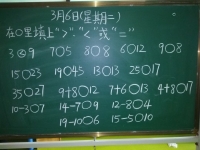 3月6日(星期二)
在○里填上">""<"或"="
3○9 7○5 3○8 6○12 9○8
15○23 19○45 13○13 25○17
35○27 9+8○12 7+6○13 4+8○17
10-3○7 14-7○9 12-8○4
19-10○6 15-5○10